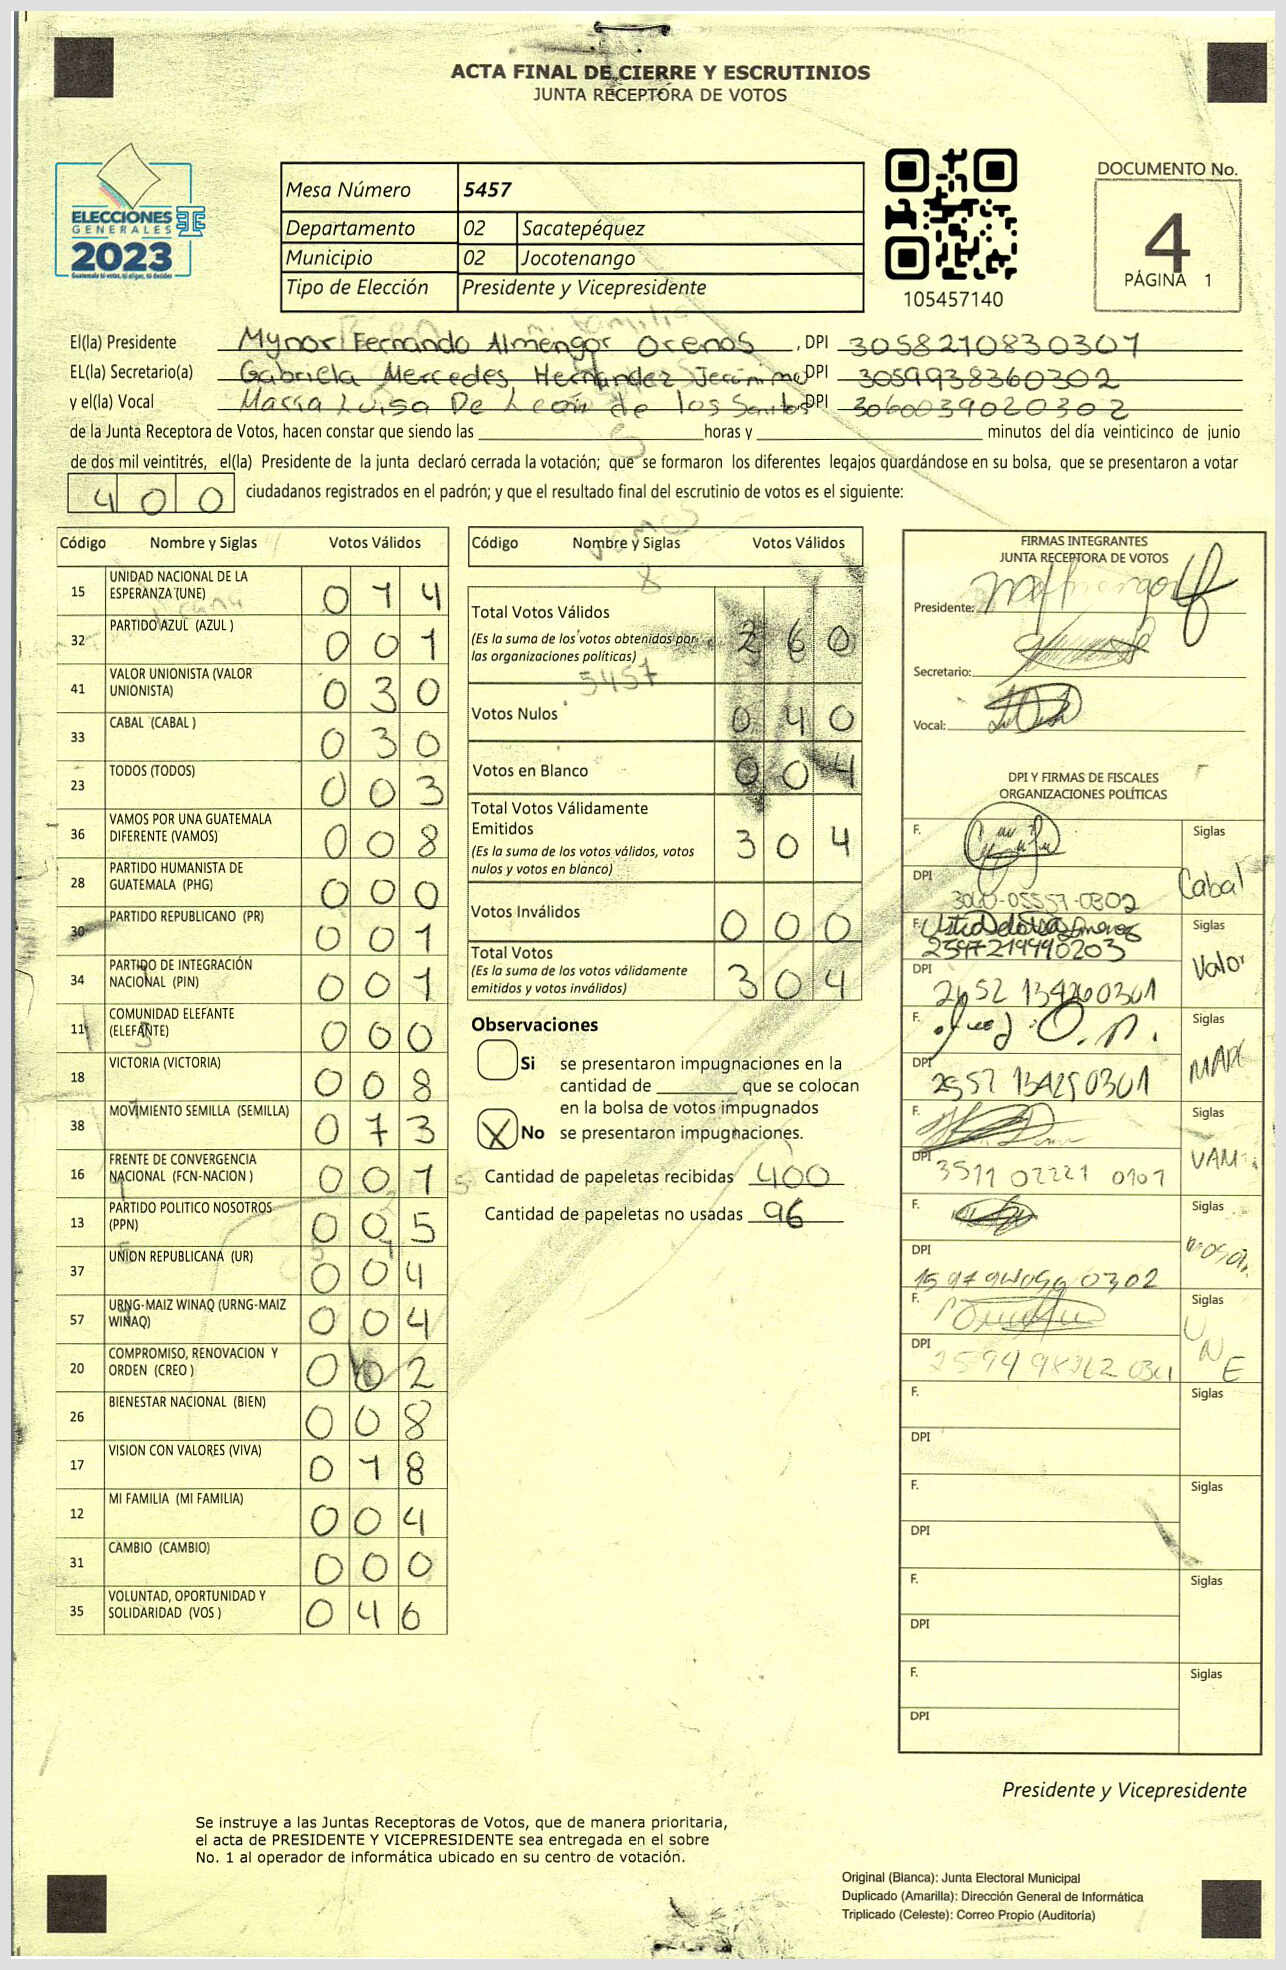 ACTA FINAL DE CIERRE Y ESCRUTINIOS
JUNTA RECEPTORA DE VOTOS
ELECCIONES
GENERALES
2023
Guatemala tú votas, tú eliges, tú decides
Mesa Número 5457
Departamento 02 Sacatepéquez
Municipio 02 Jocotenango
Tipo de Elección Presidente y Vicepresidente
105457140
DOCUMENTO No.
4
PÁGINA 1
El(la) Presidente Mynor Fernando Almengor Orenos, DPI 3058210830301
EL(la) Secretario(a) Gabriela Mercedes Hernandez Jerónimo DPI 3059938360302
y el(la) Vocal Maria Luisa De León de los Santos DPI 3060039020302
de la Junta Receptora de Votos, hacen constar que siendo las horas y minutos del día veinticinco de junio
de dos mil veintitrés, el(la) Presidente de la junta declaró cerrada la votación; que se formaron los diferentes legajos guardándose en su bolsa, que se presentaron a votar
400 ciudadanos registrados en el padrón; y que el resultado final del escrutinio de votos es el siguiente:
Código Nombre y Siglas Votos Válidos
15 UNIDAD NACIONAL DE LA ESPERANZA (UNE) 014
32 PARTIDO AZUL (AZUL ) 001
41 VALOR UNIONISTA (VALOR UNIONISTA) 030
33 CABAL (CABAL ) 030
23 TODOS (TODOS) 003
36 VAMOS POR UNA GUATEMALA DIFERENTE (VAMOS) 008
28 PARTIDO HUMANISTA DE GUATEMALA (PHG) 000
30 PARTIDO REPUBLICANO (PR) 001
34 PARTIDO DE INTEGRACIÓN NACIONAL (PIN) 001
11 COMUNIDAD ELEFANTE (ELEFANTE) 000
18 VICTORIA (VICTORIA) 008
38 MOVIMIENTO SEMILLA (SEMILLA) 073
16 FRENTE DE CONVERGENCIA NACIONAL (FCN-NACION ) 001
13 PARTIDO POLITICO NOSOTROS (PPN) 005
37 UNION REPUBLICANA (UR) 004
57 URNG-MAIZ WINAQ (URNG-MAIZ WINAQ) 004
20 COMPROMISO, RENOVACION Y ORDEN (CREO ) 002
26 BIENESTAR NACIONAL (BIEN) 008
17 VISION CON VALORES (VIVA) 018
12 MI FAMILIA (MI FAMILIA) 004
31 CAMBIO (CAMBIO) 000
35 VOLUNTAD, OPORTUNIDAD Y SOLIDARIDAD (VOS ) 046
Código Nombre y Siglas Votos Válidos
Total Votos Válidos 260
(Es la suma de los votos obtenidos por
las organizaciones políticas)
5457
Votos Nulos 040
Votos en Blanco 004
Total Votos Válidamente
Emitidos 304
(Es la suma de los votos válidos, votos
nulos y votos en blanco)
Votos Inválidos 000
Total Votos 304
(Es la suma de los votos válidamente
emitidos y votos inválidos)
Observaciones
Si se presentaron impugnaciones en la
cantidad de que se colocan
en la bolsa de votos impugnados
X No se presentaron impugnaciones.
Cantidad de papeletas recibidas 400
Cantidad de papeletas no usadas 96
FIRMAS INTEGRANTES
JUNTA RECEPTORA DE VOTOS
Presidente:
Secretario:
Vocal:
DPI Y FIRMAS DE FISCALES
ORGANIZACIONES POLÍTICAS
F. Siglas
DPI Cabal
F. Siglas
2597219990203
DPI Valor
F. Siglas
DPI
F. Siglas
DPI 3511 02221 0101
F. Siglas
DPI
F. Siglas
DPI UNE
F. Siglas
DPI
F. Siglas
DPI
F. Siglas
DPI
F. Siglas
DPI
Presidente y Vicepresidente
Se instruye a las Juntas Receptoras de Votos, que de manera prioritaria,
el acta de PRESIDENTE Y VICEPRESIDENTE sea entregada en el sobre
No. 1 al operador de informática ubicado en su centro de votación.
Original (Blanca): Junta Electoral Municipal
Duplicado (Amarilla): Dirección General de Informática
Triplicado (Celeste): Correo Propio (Auditoría)